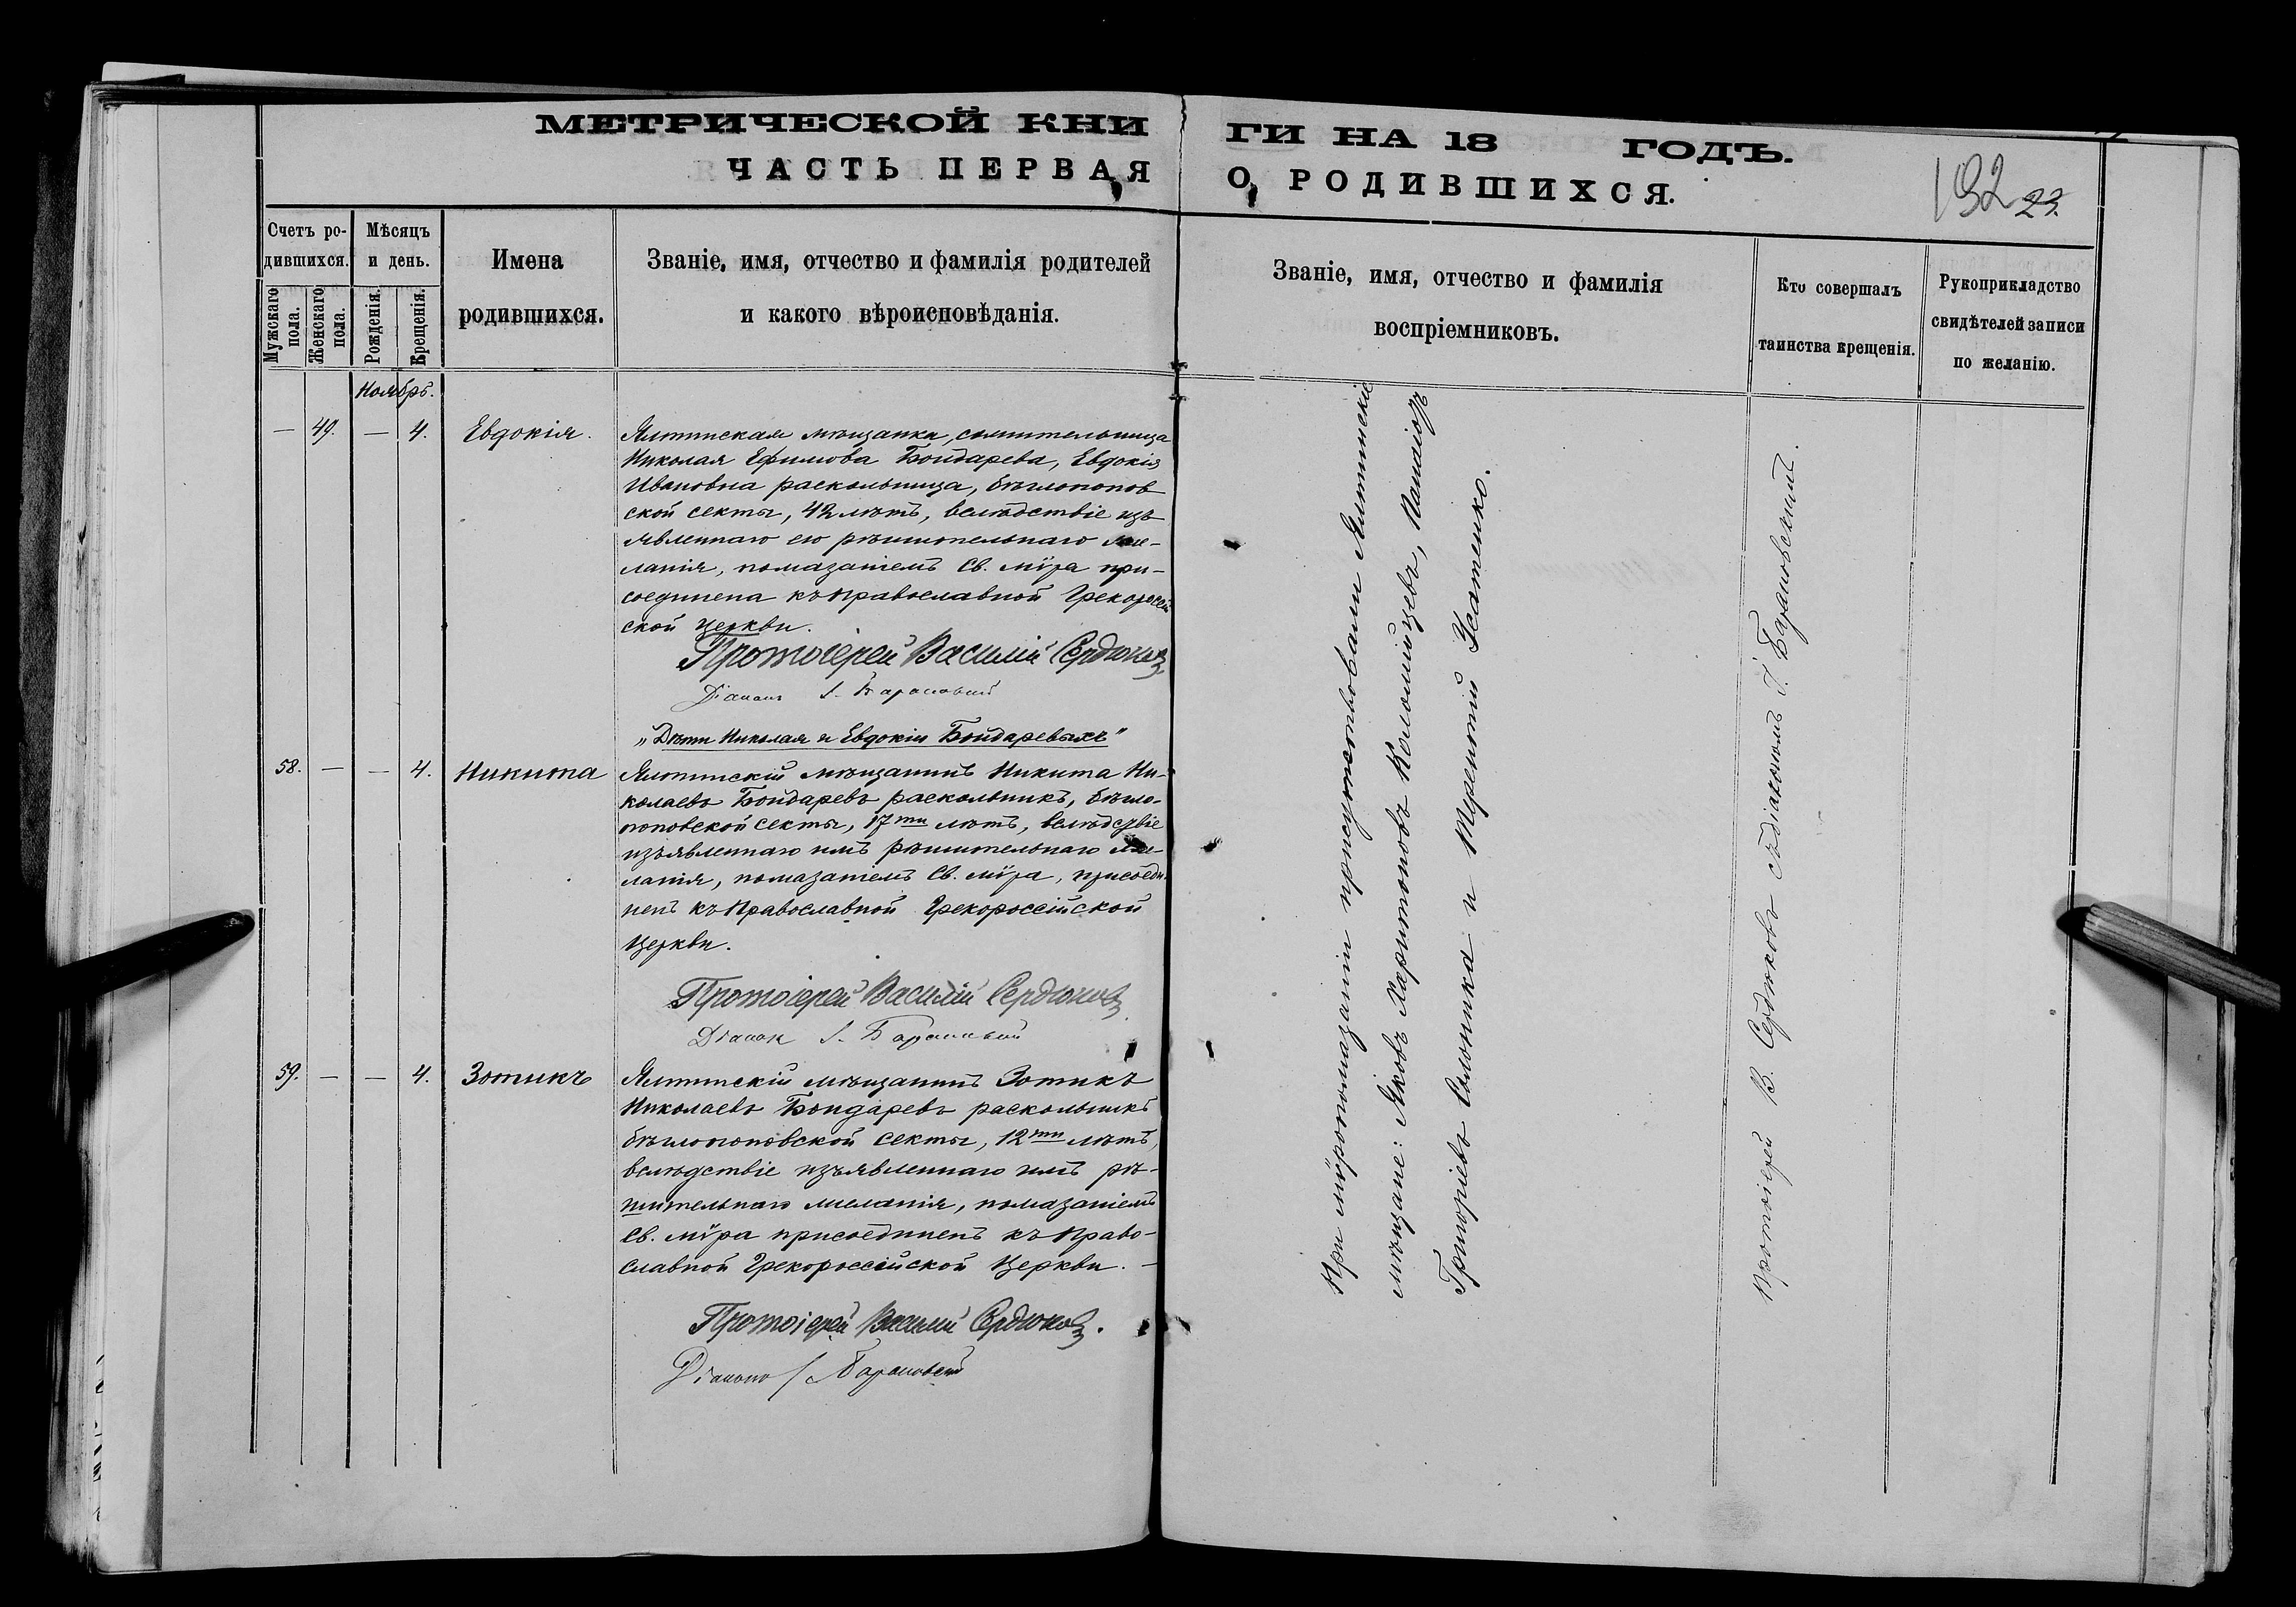 МЕТРИЧЕСКОЙ КНИГИ НА 18 ГОДЪ.
ЧАСТЬ ПЕРВАЯ О РОДИВШИХСЯ.
192 23.
Счетъ родившихся.
Мужскаго пола.
Женскаго пола.
Мѣсяцъ и день.
Рожденія.
Крещенія.
Имена
родившихся.
Званіе, имя, отчество и фамилія родителей
и какого вѣроисповѣданія.
Званіе, имя, отчество и фамилія
воспріемниковъ.
Кто совершалъ
таинства крещенія.
Рукоприкладство
свидѣтелей записи
по желанію.
Ноябрь.
— 49. — 4. Евдокія.
Ялтинская мѣщанка, сожительница
Николая Ефимова Бондарева, Евдокія
Ивановна раскольница, бѣглопопов
ской секты, 42 лѣтъ, вслѣдствіе изъ
явленнаго ею рѣшительнаго же-
ланія, помазаніемъ Св. мѵра при-
соединена къ Православной Грекоросій
ской Церкви.
Протоіерей Василій Сердюковъ
Діаконъ І. Барановскій
„Дѣти Николая и Евдокіи Бондаревыхъ"
58. — — 4. Никита
Ялтинскій мѣщанинъ Никита Ни-
колаевъ Бондаревъ раскольникъ, бѣгло-
поповской секты, 17ти лѣтъ, вслѣдствіе
изъявленнаго имъ рѣшительнаго же-
ланія, помазаніемъ Св. мѵра, присоеди-
ненъ къ Православной Грекороссійской
Церкви.
Протоіерей Василій Сердюковъ
Діакон І. Барановскій
59. — — 4. Зотикъ
Ялтинскій мѣщанинъ Зотикъ
Николаевъ Бондаревъ раскольникъ
бѣглопоповской секты, 12ти лѣтъ,
вслѣдствіе изъявленнаго имъ рѣ-
шительнаго желанія, помазаніемъ
Св. мѵра присоединенъ къ Право-
славной Грекороссійской Церкви. —
Протоіерей Василій Сердюковъ.
Діаконъ І. Барановскій
При мѵропомазаніи присутствовали Ялтинскіе
мѣщане: Яковъ Харитоновъ Коломійцевъ,
Григоріевъ и Терентій Усатенко.
Протоіерей В. Сердюковъ съ діакономъ І. Барановскимъ.